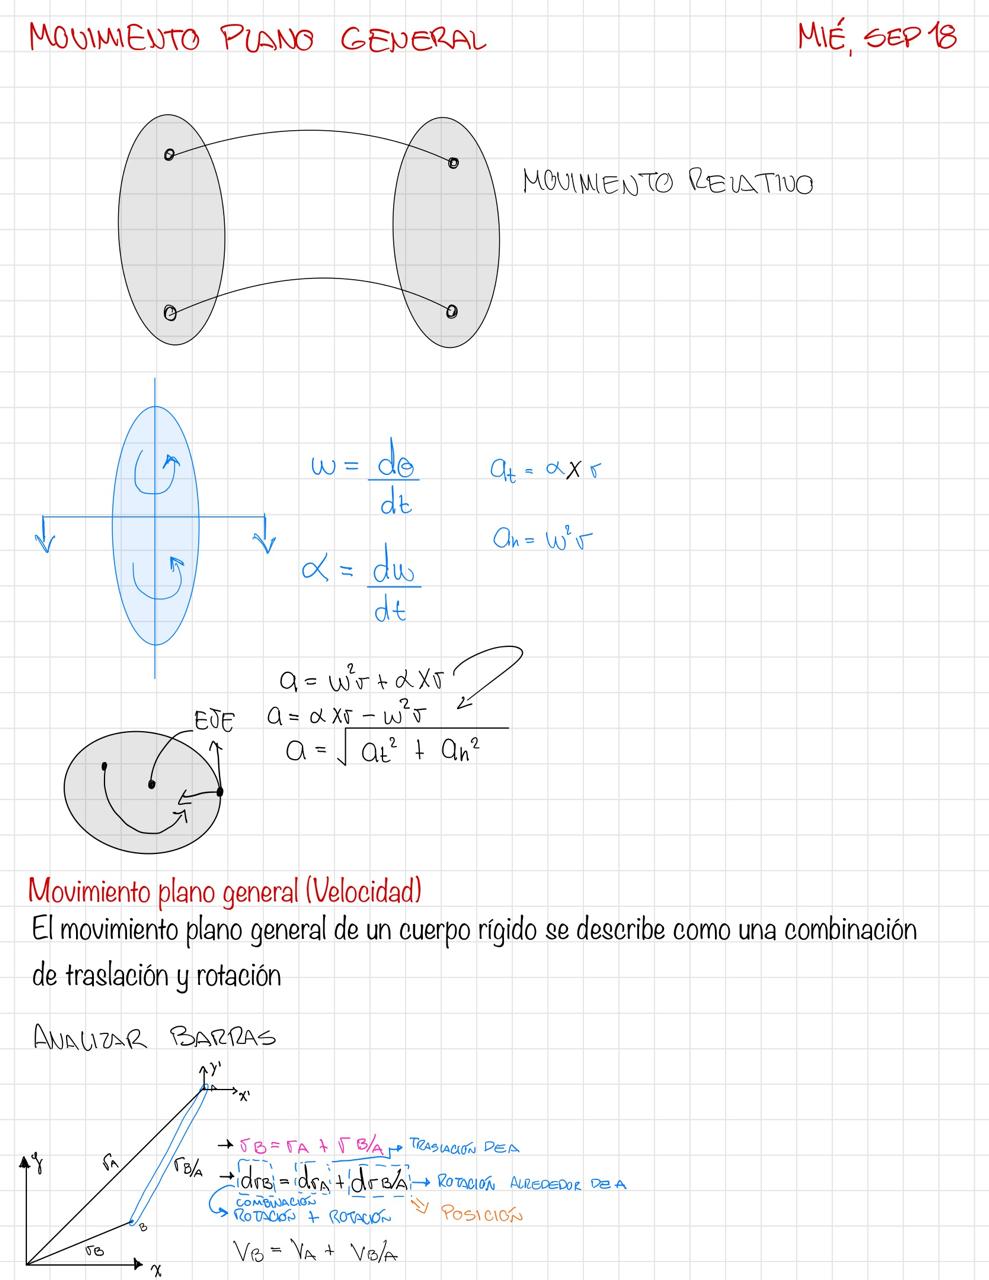 MOVIMIENTO PLANO GENERAL MIÉ, SEP 18
MOVIMIENTO RELATIVO
ω = dθ/dt
at = α x r
an = ω²r
α = dω/dt
a = ω²r + α x r
EJE
a = α x r - ω²r
a = √at² + an²
Movimiento plano general (Velocidad)
El movimiento plano general de un cuerpo rígido se describe como una combinación
de traslación y rotación
ANALIZAR BARRAS
y'
A
x'
→ rB = rA + rB/A → TRASLACIÓN DE A
y
rA
rB/A
→ drB = drA + drB/A → ROTACIÓN ALREDEDOR DE A
COMBINACIÓN
ROTACIÓN + ROTACIÓN
POSICIÓN
B
rB
x
VB = VA + VB/A